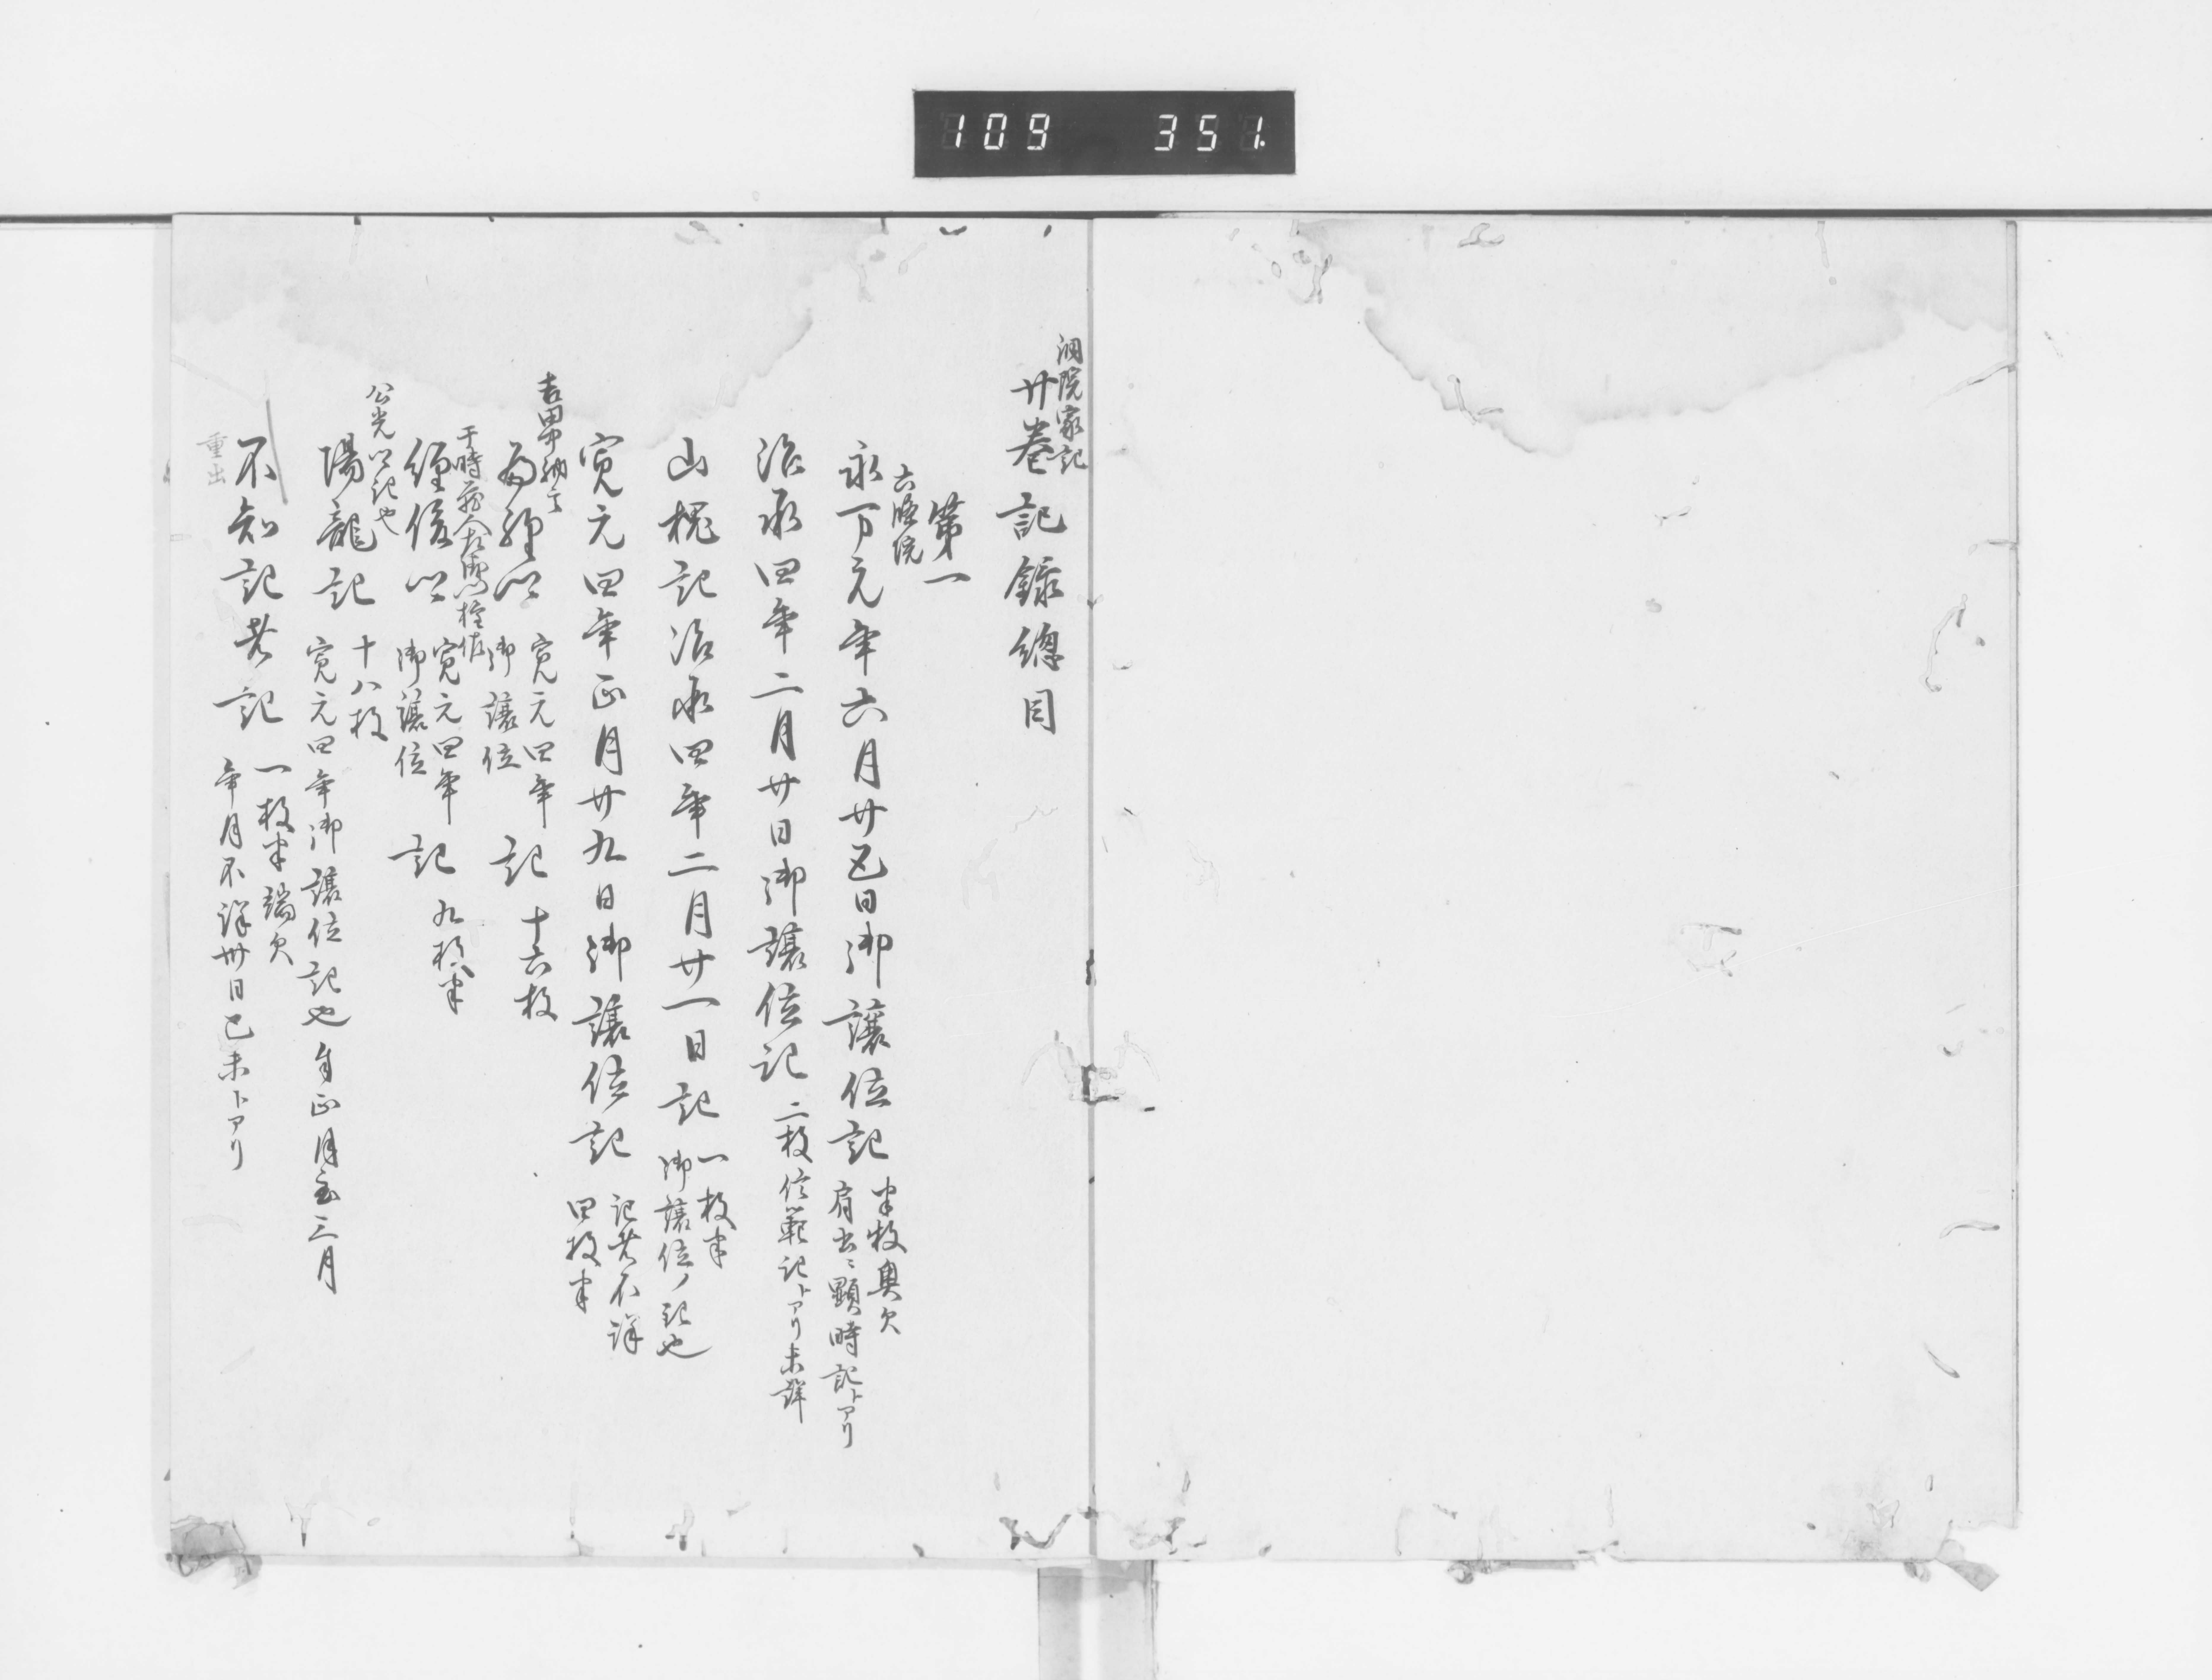 109 351.
洞院家記
廿巻記録總目
第一
六條院
永万元年六月廿五日御譲位記
半枚奥欠
肩書ニ顕時記トアリ
治承四年二月廿日御譲位記
二枚信範記トアリ未詳
山槐記治承四年二月廿一日記
一枚半
御譲位ノ記也
寛元四年正月廿九日御譲位記
記者不詳
四枚半
吉田中納言
為経卿
寛元四年
御譲位
記 十六枚
于時蔵人左衛門権佐
経俊卿
寛元四年
御譲位
記 九枚半
公光卿記也
陽龍記
十八枚
寛元四年御譲位記也自正月至三月
不知記者記
一枚半端欠
年月不詳卅日己未トアリ
重出